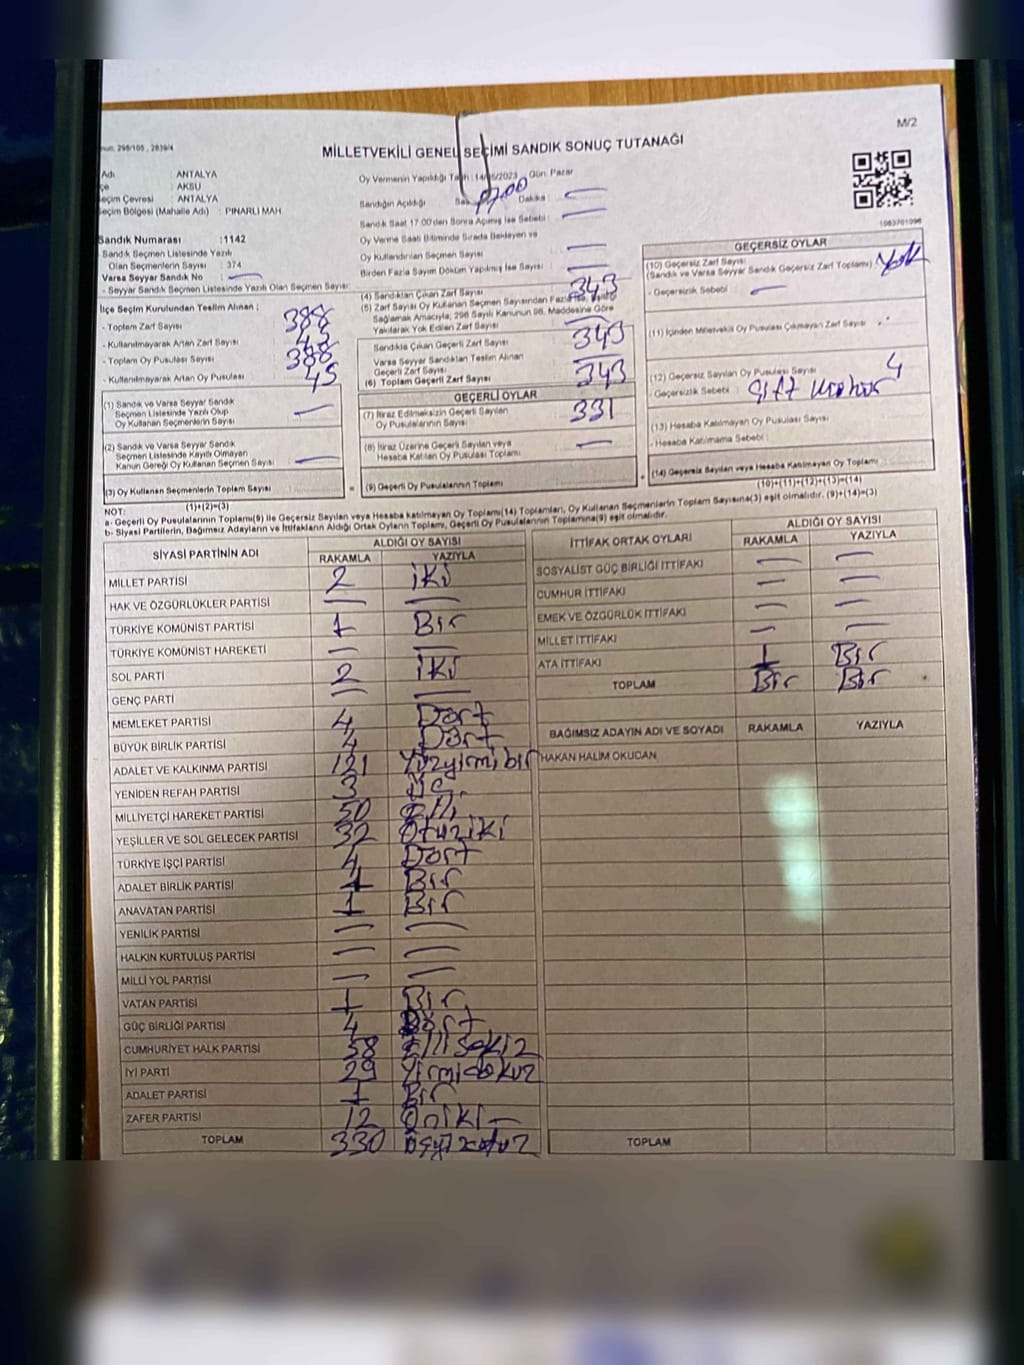 M/2
MİLLETVEKİLİ GENEL SEÇİMİ SANDIK SONUÇ TUTANAĞI
Adı : ANTALYA
: AKSU
Seçim Çevresi : ANTALYA
Seçim Bölgesi (Mahalle Adı) : PINARLI MAH
Oy Vermenin Yapıldığı Tarih : 14/05/2023 Gün: Pazar
Sandığın Açıldığı Saat 17.00 Dakika : —
Sandık Saat 17.00'den Sonra Açılmış İse Sebebi : —
Oy Verme Saati Bitiminde Sırada Bekleyen ve
Oy Kullandırılan Seçmen Sayısı : —
Birden Fazla Sayım Döküm Yapılmış İse Sayısı : —
Sandık Numarası :1142
Sandık Seçmen Listesinde Yazılı
Olan Seçmenlerin Sayısı : 374
Varsa Seyyar Sandık No : —
- Seyyar Sandık Seçmen Listesinde Yazılı Olan Seçmen Sayısı:
İlçe Seçim Kurulundan Teslim Alınan :
- Toplam Zarf Sayısı : 388
- Kullanılmayarak Artan Zarf Sayısı : 45
- Toplam Oy Pusulası Sayısı : 388
- Kullanılmayarak Artan Oy Pusulası : 45
(1) Sandık ve Varsa Seyyar Sandık
Seçmen Listesinde Yazılı Olup
Oy Kullanan Seçmenlerin Sayısı : —
(2) Sandık ve Varsa Seyyar Sandık
Seçmen Listesinde Kayıtlı Olmayan
Kanun Gereği Oy Kullanan Seçmen Sayısı : —
(3) Oy Kullanan Seçmenlerin Toplam Sayısı :
(1)+(2)=(3)
(4) Sandıktan Çıkan Zarf Sayısı : 343
(5) Zarf Sayısı Oy Kullanan Seçmen Sayısından Fazla İse, Eşitliği
Sağlamak Amacıyla, 298 Sayılı Kanunun 98. Maddesine Göre
Yakılarak Yok Edilen Zarf Sayısı : —
Sandıkta Çıkan Geçerli Zarf Sayısı : 343
Varsa Seyyar Sandıktan Teslim Alınan
Geçerli Zarf Sayısı : —
(6) Toplam Geçerli Zarf Sayısı : 343
GEÇERLİ OYLAR
(7) İtiraz Edilmeksizin Geçerli Sayılan
Oy Pusulasının Sayısı : 331
(8) İtiraz Üzerine Geçerli Sayılan veya
Hesaba Katılan Oy Pusulası Toplamı : —
(9) Geçerli Oy Pusulalarının Toplamı :
GEÇERSİZ OYLAR
(10) Geçersiz Zarf Sayısı
(Sandık ve Varsa Seyyar Sandık Geçersiz Zarf Toplamı) : Yok
- Geçersizlik Sebebi : —
(11) İçinden Milletvekili Oy Pusulası Çıkmayan Zarf Sayısı :
(12) Geçersiz Sayılan Oy Pusulası Sayısı : 4
- Geçersizlik Sebebi :
(13) Hesaba Katılmayan Oy Pusulası Sayısı :
- Hesaba Katılmama Sebebi :
(14) Geçersiz Sayılan veya Hesaba Katılmayan Oy Toplamı :
(10)+(11)+(12)+(13)=(14)
NOT:
a- Geçerli Oy Pusulalarının Toplamı(9) ile Geçersiz Sayılan veya Hesaba katılmayan Oy Toplamı(14) Toplamları, Oy Kullanan Seçmenlerin Toplam Sayısına(3) eşit olmalıdır. (9)+(14)=(3)
b- Siyasi Partilerin, Bağımsız Adayların ve İttifakların Aldığı Ortak Oyların Toplamı, Geçerli Oy Pusulalarının Toplamına(9) eşit olmalıdır.
SİYASİ PARTİNİN ADI ALDIĞI OY SAYISI
RAKAMLA YAZIYLA
MİLLET PARTİSİ 2 iki
HAK VE ÖZGÜRLÜKLER PARTİSİ — —
TÜRKİYE KOMÜNİST PARTİSİ 1 Bir
TÜRKİYE KOMÜNİST HAREKETİ — —
SOL PARTİ 2 iki
GENÇ PARTİ — —
MEMLEKET PARTİSİ 4 Dört
BÜYÜK BİRLİK PARTİSİ 4 Dört
ADALET VE KALKINMA PARTİSİ 121 Yüzyirmibir
YENİDEN REFAH PARTİSİ 3 Üç
MİLLİYETÇİ HAREKET PARTİSİ 50 Elli
YEŞİLLER VE SOL GELECEK PARTİSİ 32 Otuziki
TÜRKİYE İŞÇİ PARTİSİ 4 Dört
ADALET BİRLİK PARTİSİ 1 Bir
ANAVATAN PARTİSİ 1 Bir
YENİLİK PARTİSİ — —
HALKIN KURTULUŞ PARTİSİ — —
MİLLİ YOL PARTİSİ — —
VATAN PARTİSİ 1 Bir
GÜÇ BİRLİĞİ PARTİSİ 4 Dört
CUMHURİYET HALK PARTİSİ 58 Ellisekiz
İYİ PARTİ 29 Yirmidokuz
ADALET PARTİSİ 1 Bir
ZAFER PARTİSİ 12 Oniki —
TOPLAM 330 Üçyüzotuz
İTTİFAK ORTAK OYLARI ALDIĞI OY SAYISI
RAKAMLA YAZIYLA
SOSYALİST GÜÇ BİRLİĞİ İTTİFAKI — —
CUMHUR İTTİFAKI — —
EMEK VE ÖZGÜRLÜK İTTİFAKI — —
MİLLET İTTİFAKI — —
ATA İTTİFAKI 1 Bir
TOPLAM Bir Bir
BAĞIMSIZ ADAYIN ADI VE SOYADI RAKAMLA YAZIYLA
HAKAN HALİM OKUDAN
TOPLAM